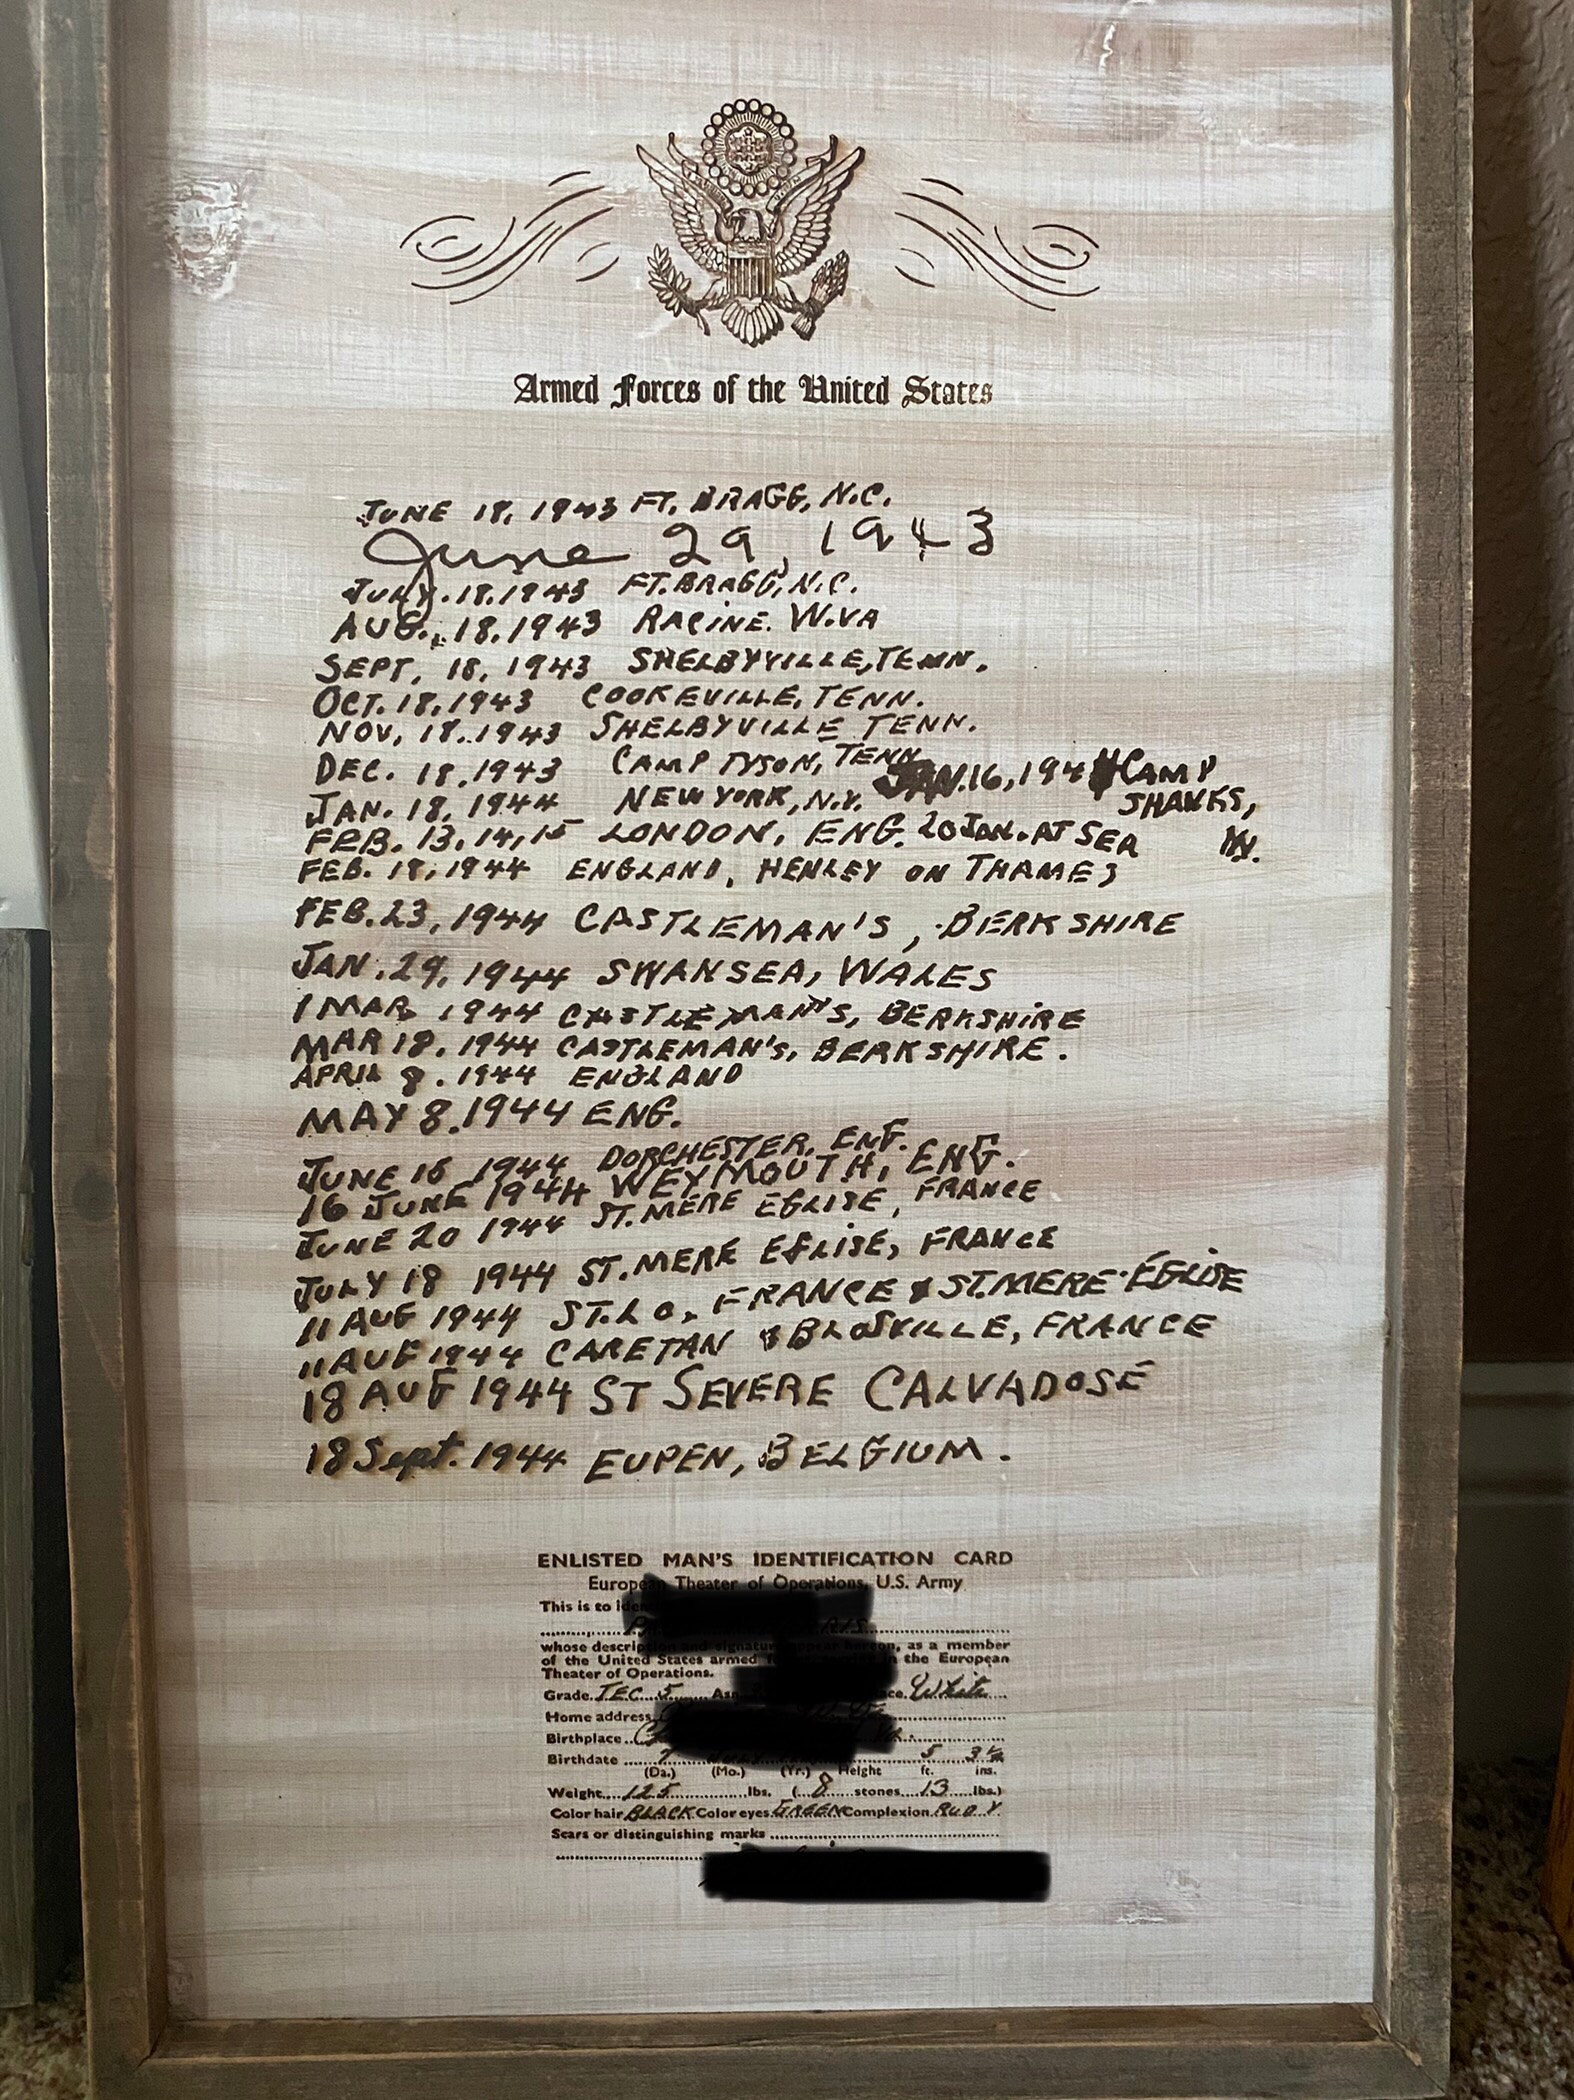 Armed Forces of the United States
JUNE 18, 1943 FT. BRAGG, N.C.
June 29, 1943
JULY. 18. 1943 FT. BRAGG, N.C.
AUG. 18. 1943 RACINE. W.VA
SEPT. 18, 1943 SHELBYVILLE, TENN.
OCT. 18, 1943 COOKEVILLE, TENN.
NOV, 18. 1943 SHELBYVILLE TENN.
DEC. 18. 1943 CAMP TYSON, TENN JAN. 16, 1944 CAMP
JAN. 18, 1944 NEW YORK, N.Y. SHANKS,
FEB. 13, 14, 15 LONDON, ENG. 20 JAN. AT SEA NY.
FEB. 18, 1944 ENGLAND, HENLEY ON THAMES
FEB. 23, 1944 CASTLEMAN'S, BERKSHIRE
JAN. 29, 1944 SWANSEA, WALES
1 MAR 1944 CASTLEMAN'S, BERKSHIRE
MAR 18. 1944 CASTLEMAN'S, BERKSHIRE.
APRIL 8. 1944 ENGLAND
MAY 8. 1944 ENG.
JUNE 16 1944 DORCHESTER, ENG.
16 JUNE 1944 WEYMOUTH, ENG.
JUNE 20 1944 ST. MERE EGLISE, FRANCE
JULY 18 1944 ST. MERE EGLISE, FRANCE
11 AUG 1944 ST. LO, FRANCE & ST. MERE-ÉGLISE
11 AUG 1944 CARETAN & BLOSVILLE, FRANCE
18 AUG 1944 ST SEVERE CALVADOSE
18 Sept. 1944 EUPEN, BELGIUM.
ENLISTED MAN'S IDENTIFICATION CARD
European Theater of Operations, U.S. Army
This is to
whose description and signature appear hereon, as a member
of the United States armed in the European
Theater of Operations.
Grade TEC 5 White
Home address
Birthplace
Birthdate 7 5 3½
(Da.) (Mo.) (Yr.) Height ft. ins.
Weight 125 lbs. (8 stones 13 lbs.)
Color hair BLACK Color eyes GREEN Complexion RUDY
Scars or distinguishing marks